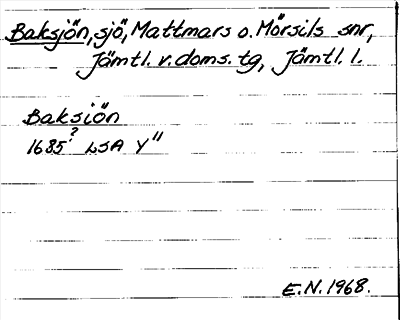 Baksjön, sjö, Mattmars o. Mörsils snr,
Jämtl. v. doms. tg, Jämtl. l.
Baksiön
1685? LSA Y"
E.N. 1968.